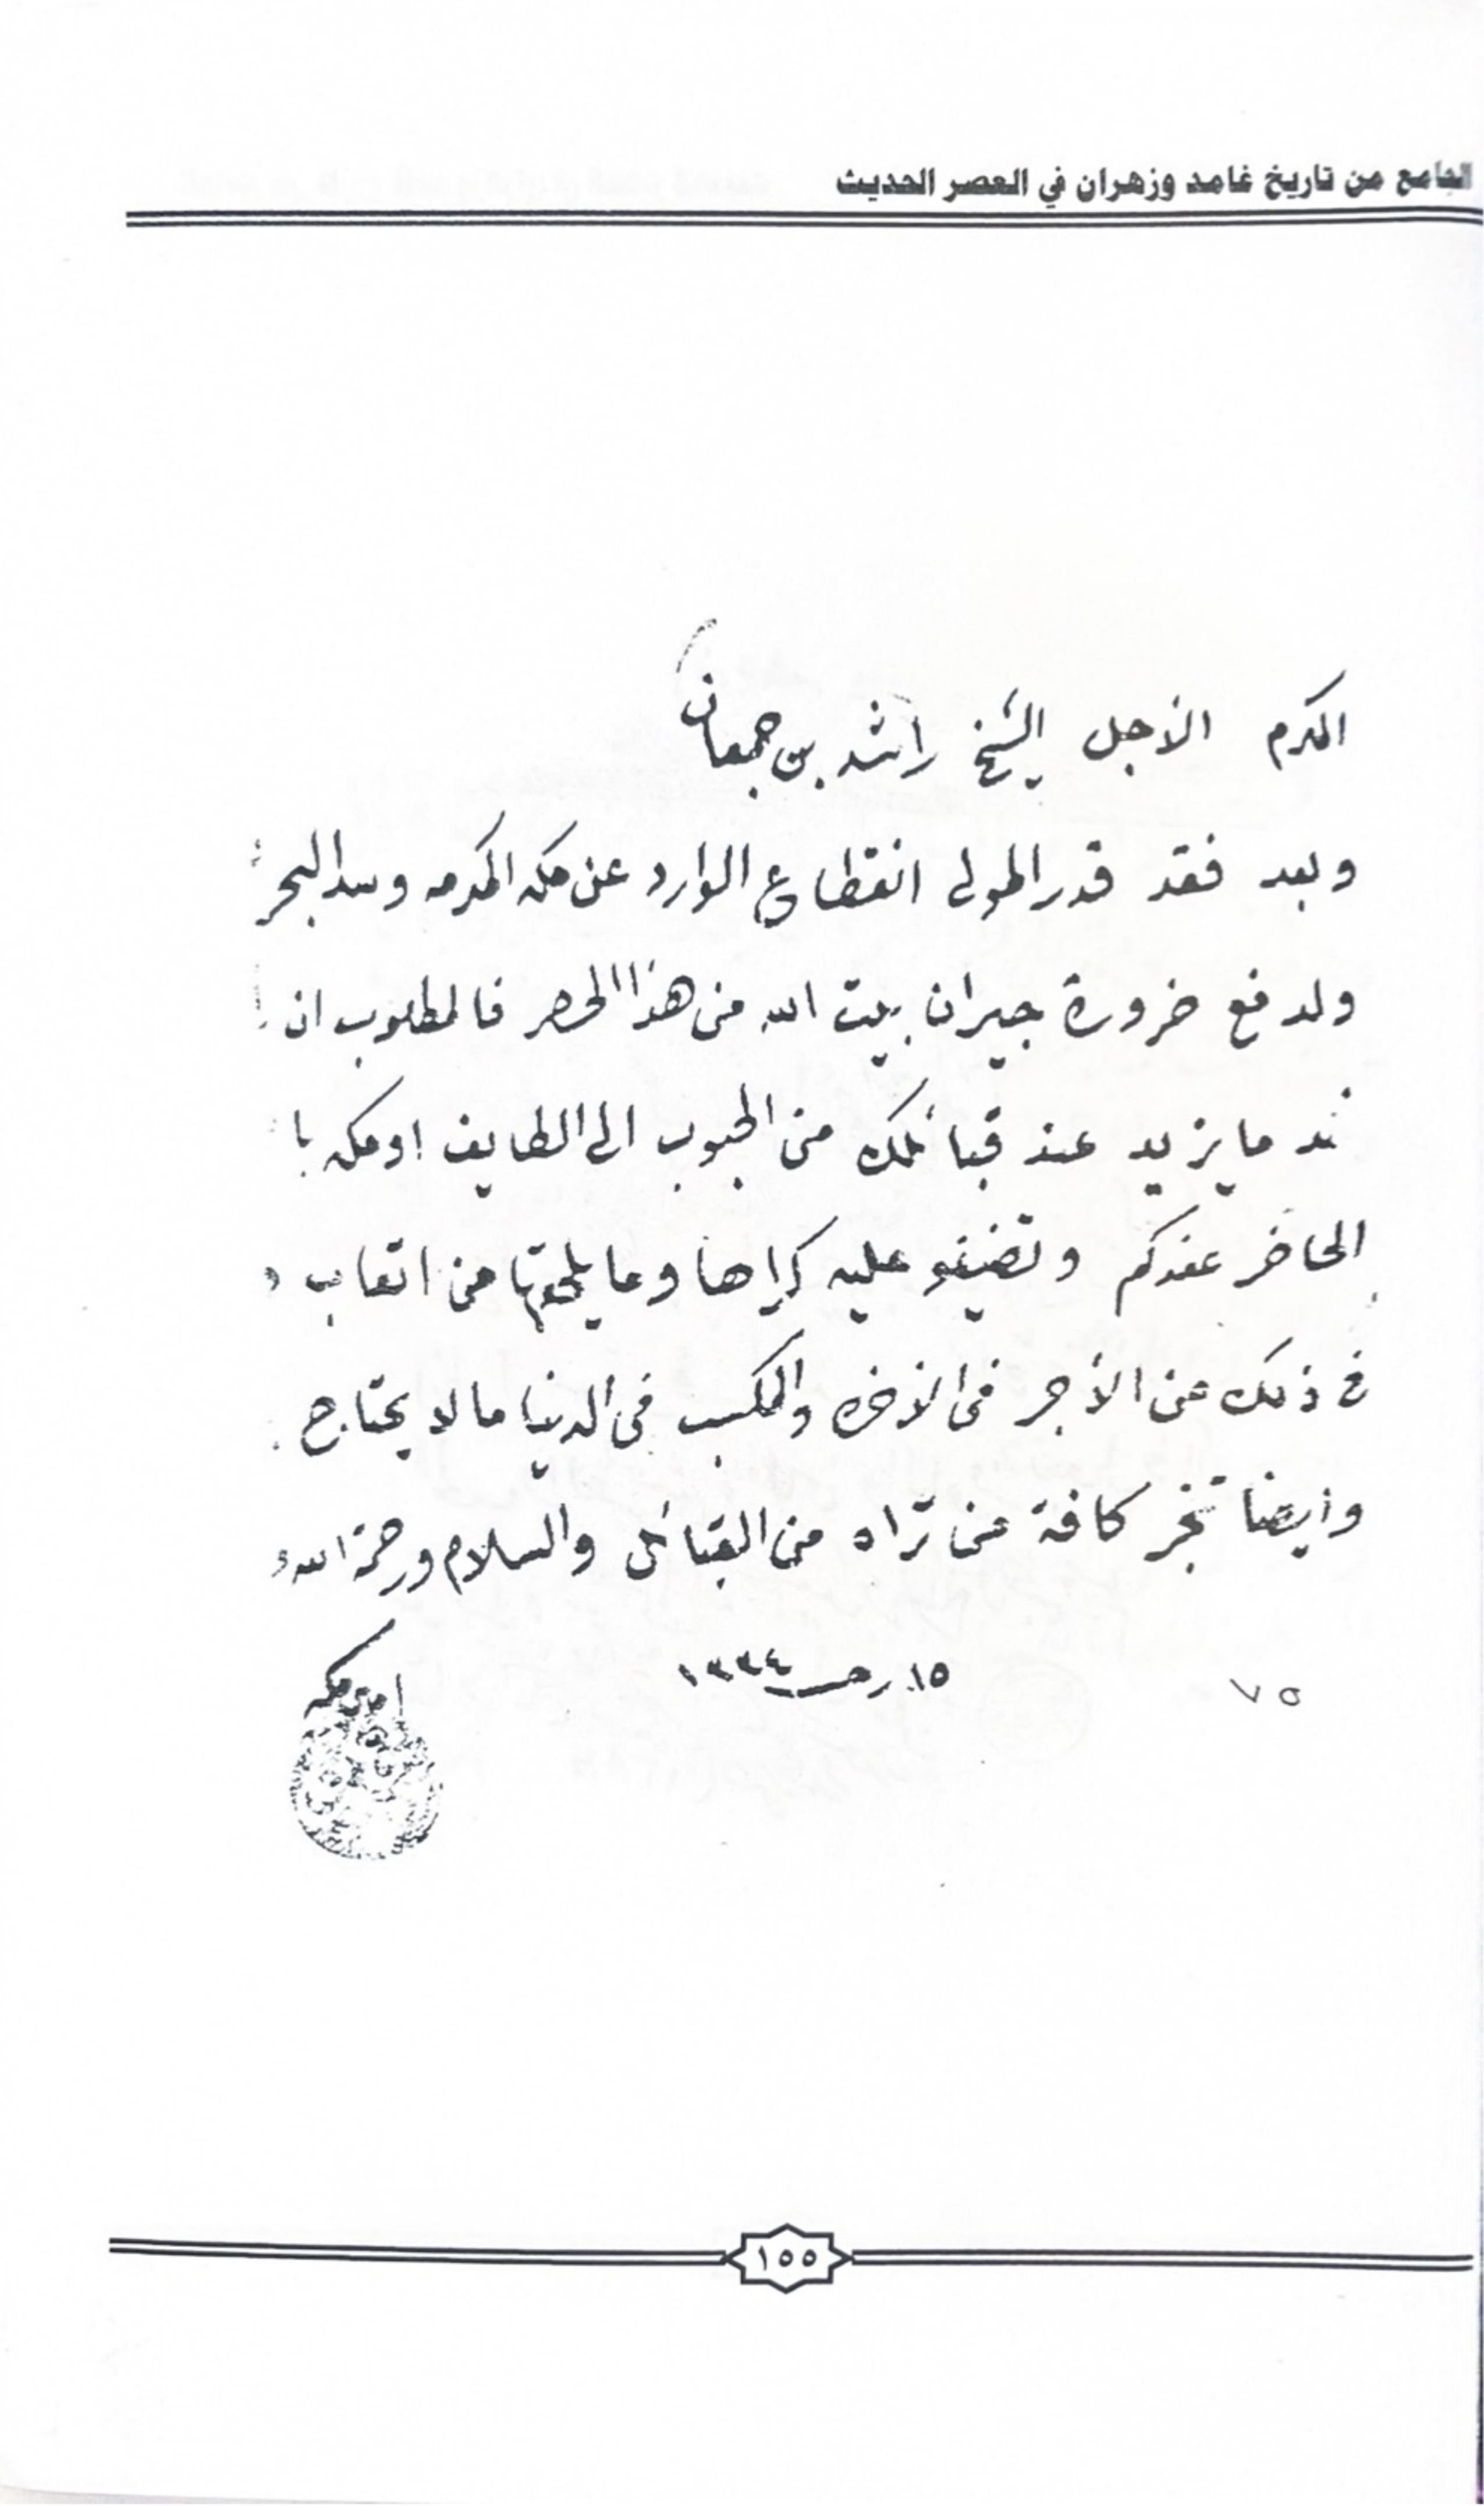 الجامع من تاريخ غامد وزهران في العصر الحديث
المكرم الأجل الشيخ راشد بن جمعان
وبعد فقد قدر المولى انقطاع الوارد عن مكه المكرمه وسد البحر
ولدفع ضرورة جيران بيت الله من هذا الحصر فالمطلوب ان
ما يزيد عند قبائلك من الحبوب الى الطايف او مكه
الحاضر عندكم وتضيفو عليه كراها وما يلحقها من اتعاب
في ذلك من الأجر في الأخره والمكسب في الدنيا ما لا يحتاج
وأيضا تخبر كافة من تراه من القبائل والسلام ورحمة الله
٧٥ ١٥ رجب ١٣٣٤
امير مكه
١٥٥